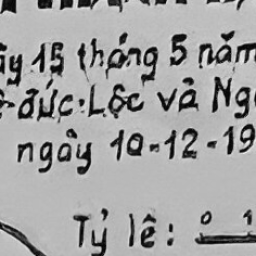 ày 15 tháng 5 năm
đức: Lộc và Ng
ngày 10-12-19
Tỷ lê: 0 1